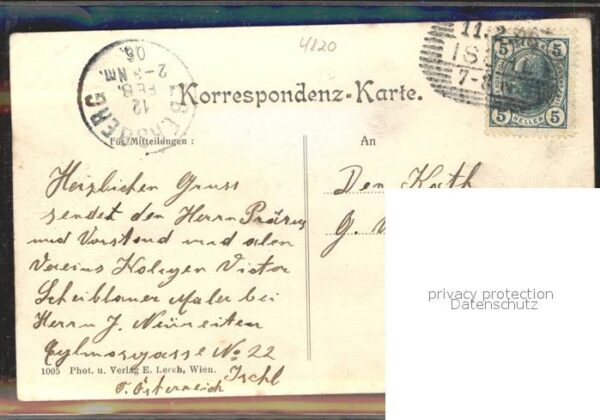 4820
11.2.06
18
7-8 N
5 5
5 HELLER 5
BERG
12
FEB.
2-3 Nm.
06.
Korrespondenz-Karte.
Für Mitteilungen:
An
Herzlichen Gruss
sendet den Herrn Präses
und Vorstand und alen
Vereins Kolegen Victor
Scheiblauer Maler bei
Herrn J. Neüreiter
No 22
Ischl
Österreich
1005 Phot. u. Verlag E. Lerch, Wien.
Den Kath.
G.
privacy protection
Datenschutz